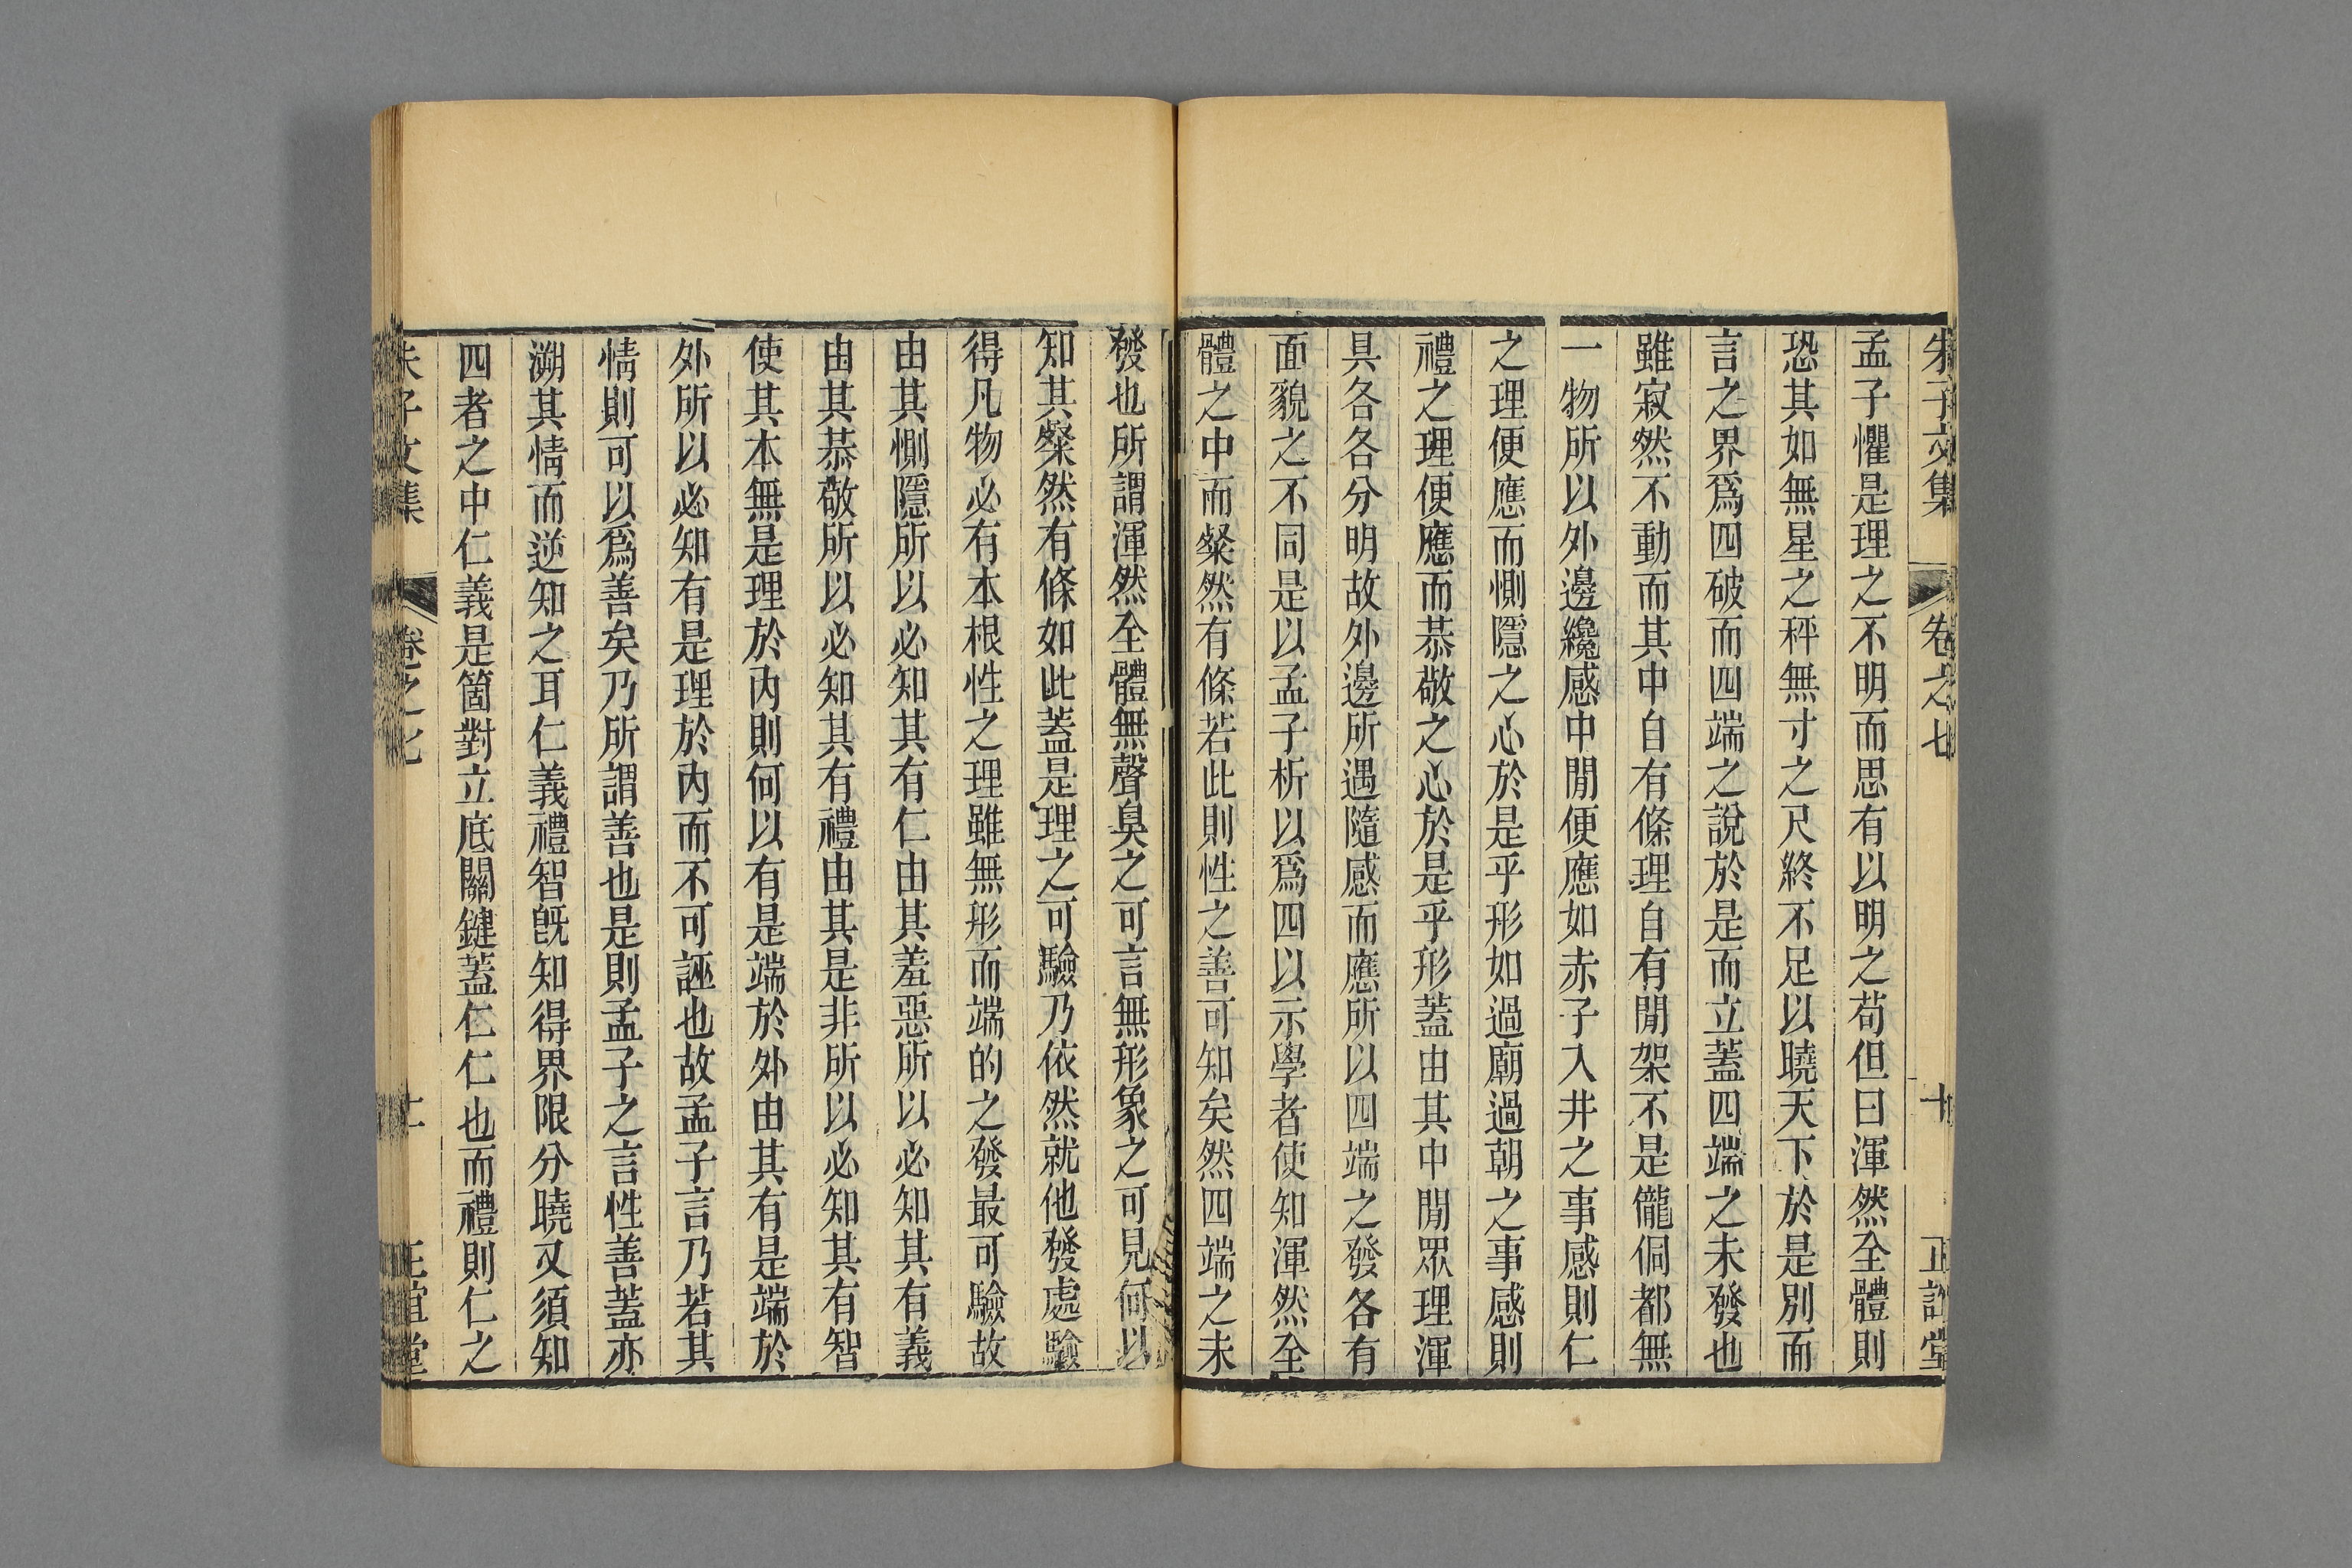 朱子文集 卷之七 十 正誼堂
孟子懼是理之不明而思有以明之苟但曰渾然全體則
恐其如無星之秤無寸之尺終不足以曉天下於是別而
言之界爲四破而四端之說於是而立蓋四端之未發也
雖寂然不動而其中自有條理自有閒架不是儱侗都無
一物所以外邊纔感中閒便應如赤子入井之事感則仁
之理便應而惻隱之心於是乎形如過廟過朝之事感則
禮之理便應而恭敬之心於是乎形蓋由其中閒眾理渾
具各各分明故外邊所遇隨感而應所以四端之發各有
面貌之不同是以孟子析以爲四以示學者使知渾然全
體之中而粲然有條若此則性之善可知矣然四端之未
發也所謂渾然全體無聲臭之可言無形象之可見何以
知其粲然有條如此蓋是理之可驗乃依然就他發處驗
得凡物必有本根性之理雖無形而端的之發最可驗故
由其惻隱所以必知其有仁由其羞惡所以必知其有義
由其恭敬所以必知其有禮由其是非所以必知其有智
使其本無是理於內則何以有是端於外由其有是端於
外所以必知有是理於內而不可誣也故孟子言乃若其
情則可以爲善矣乃所謂善也是則孟子之言性善蓋亦
溯其情而逆知之耳仁義禮智旣知得界限分曉又須知
四者之中仁義是箇對立底關鍵蓋仁仁也而禮則仁之
朱子文集 卷之七 正誼堂